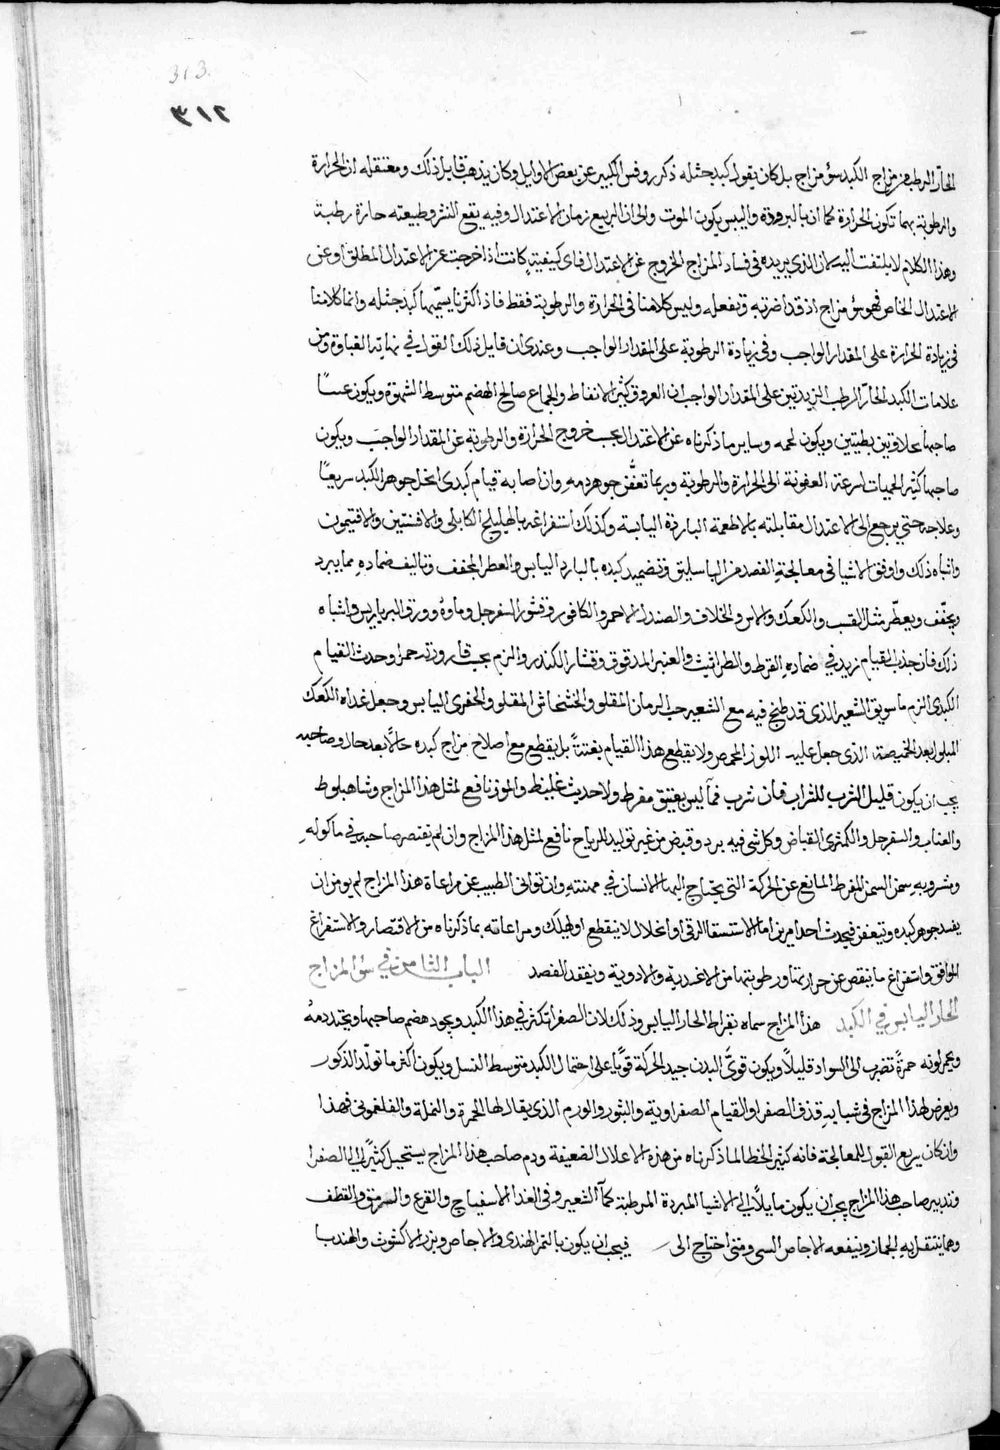 313.
٣١٢
الحار الرطب من مزاج الكبد سؤ مزاج بل كان يقول كبد جثله ذكر روفس الكبير عن بعض الاوايل وكان يذهب قايل ذلك ومعتقله ان الحرارة
والرطوبة بهما تكون الحرارة كما ان بالبرودة واليبس يكون الموت والحال الربيع زمان الاعتدال وفيه يقع النشو وطبيعته حارة رطبة
وهذا الكلام لا يلتفت اليه لان الذي يريده في فساد المزاج الخروج عن الاعتدال فاى كيفية كانت اذا خرجت عن الاعتدال المطلق او عن
الاعتدال الخاص فهو سؤ مزاج اذ قد اضرت به وبفعله وليس كلامنا في الحرارة والرطوبة فقط فاذ اكثرنا يسميها كبد جثله وانما كلامنا
في زيادة الحرارة على المقدار الواجب وفي زيادة الرطوبة على المقدار الواجب وعندى ان قايل ذلك القول في نهاية الغباوة ومن
علامات الكبد الحار الرطب الزيدتين على المقدار الواجب ان العروق كثير الانفاط والجماع صالح الهضم متوسط الشهوة ويكون
صاحبها ويكون لحمه وساير ما ذكرناه عن الاعتدال بحسب خروج الحرارة والرطوبة عن المقدار الواجب ويكون
صاحبها كثير الحميات لسرعة العفونة الى الحرارة والرطوبة وربما تعفن جوهر دمه وان اصابه قيام كبدى انحل جوهر الكبد سريعًا
وعلاجه حتي يرجع الى الاعتدال مقابلته بالاطعمة الباردة اليابسة وكذلك استفراغه بالهليلج الكابلى والافسنتين والافتيمون
واشباه ذلك واوفق الاشيا في معالجة الفصد من الباسليق وتضميد كبده بالبارد اليابس والعطر المجفف وتاليف ضماده مما يبرد
ويجفف ويعطر مثل القسب والكعك والاس والخلاف والصندل الاحمر والكافور وقشور السفرجل وماؤه وورق البرباريس واشباه
ذلك فان جذب القيام زيد في ضماده القرط والطراثيث والعنبر المدقوق وقشار الكندر والزم بحب قارورته حمرا وحدث القيام
الكبدى الزم ماسويق الشعير الذى قد طبخ فيه مع الشعير حب الرمان المقلو والخشخاش المقلو والخفرى اليابس وجعل غداه الكعك
المبلول بعد الخميصة الذى جعل عليه اللوز المحمص ولا يقطع هذا القيام بغتتًا بل يقطع مع اصلاح مزاج كبده حالًا بعد حال وصاحبه
يجب ان يكون قليل الشرب للشراب فان شرب فما ليس بعتيق مفرط ولا حديث غليظ والموز نافع لمثل هذا المزاج وشاهبلوط
والعناب والسفرجل والكمثرى القباض وكل شى فيه برد وقبض من غير توليد للرياح نافع لمثل هذا المزاج وان لم يقتصر صاحبه في ماكوله
ومشروبه سمن السمن المفرط المانع عن الحركة التى يحتاج اليها الانسان في مهنته وان توانى الطبيب عن مراعاة هذا المزاج لم يومن ان
يفسد جوهر كبده ويتعفن فيحدث احد امرين اما الاستسقا الزقى او انحلال لا ينقطع او يهلك ومراعاته بما ذكرناه من الاقتصار والاستفراغ
الموافق واستفراغ ما ينقص عن حرارتها ورطوبتها من الاغدية والادوية ويفقد الفصد الباب الثامن في سؤ المزاج
الحار اليابس في الكبد هذا المزاج سماه بقراط الحار اليابس وذلك لان الصفرا تكثر في هذا الكبد ويجود هضم صاحبها ويحتد دمه
ويحمر لونه حمرةً تضرب الى السواد قليلًا ويكون قوىَّ البدن جيد الحركة قويًا على احتمال الكبد متوسط النسل ويكون اكثر ما تولد الذكور
ويعرض لهذا المزاج في شبابه قذف الصفرا والقيام الصفراوية والبثور والورم الذى يقال لها الحمرة والنملة والفلغمونى فهذا
وان كان سريع القبول للمعالجة فانه كثير الخطا لما ذكرناه من هذه الاعلال الضعيفة ودم صاحب هذا المزاج يستحيل كثيرًا الى الصفرا
وتدبير صاحب هذا المزاج يجب ان يكون مايلًا الى الاشيا المبردة المرطبة كما الشعير وفى الغدا الاسفيناج والقرع والسرمق والقطف
وما ينتقل به الجماز وينفعه الاجاص السى ومتى احتاج الى فيجب ان يكون بالتمر الهندى والاجاص وبزر الاكشوث والهندبا